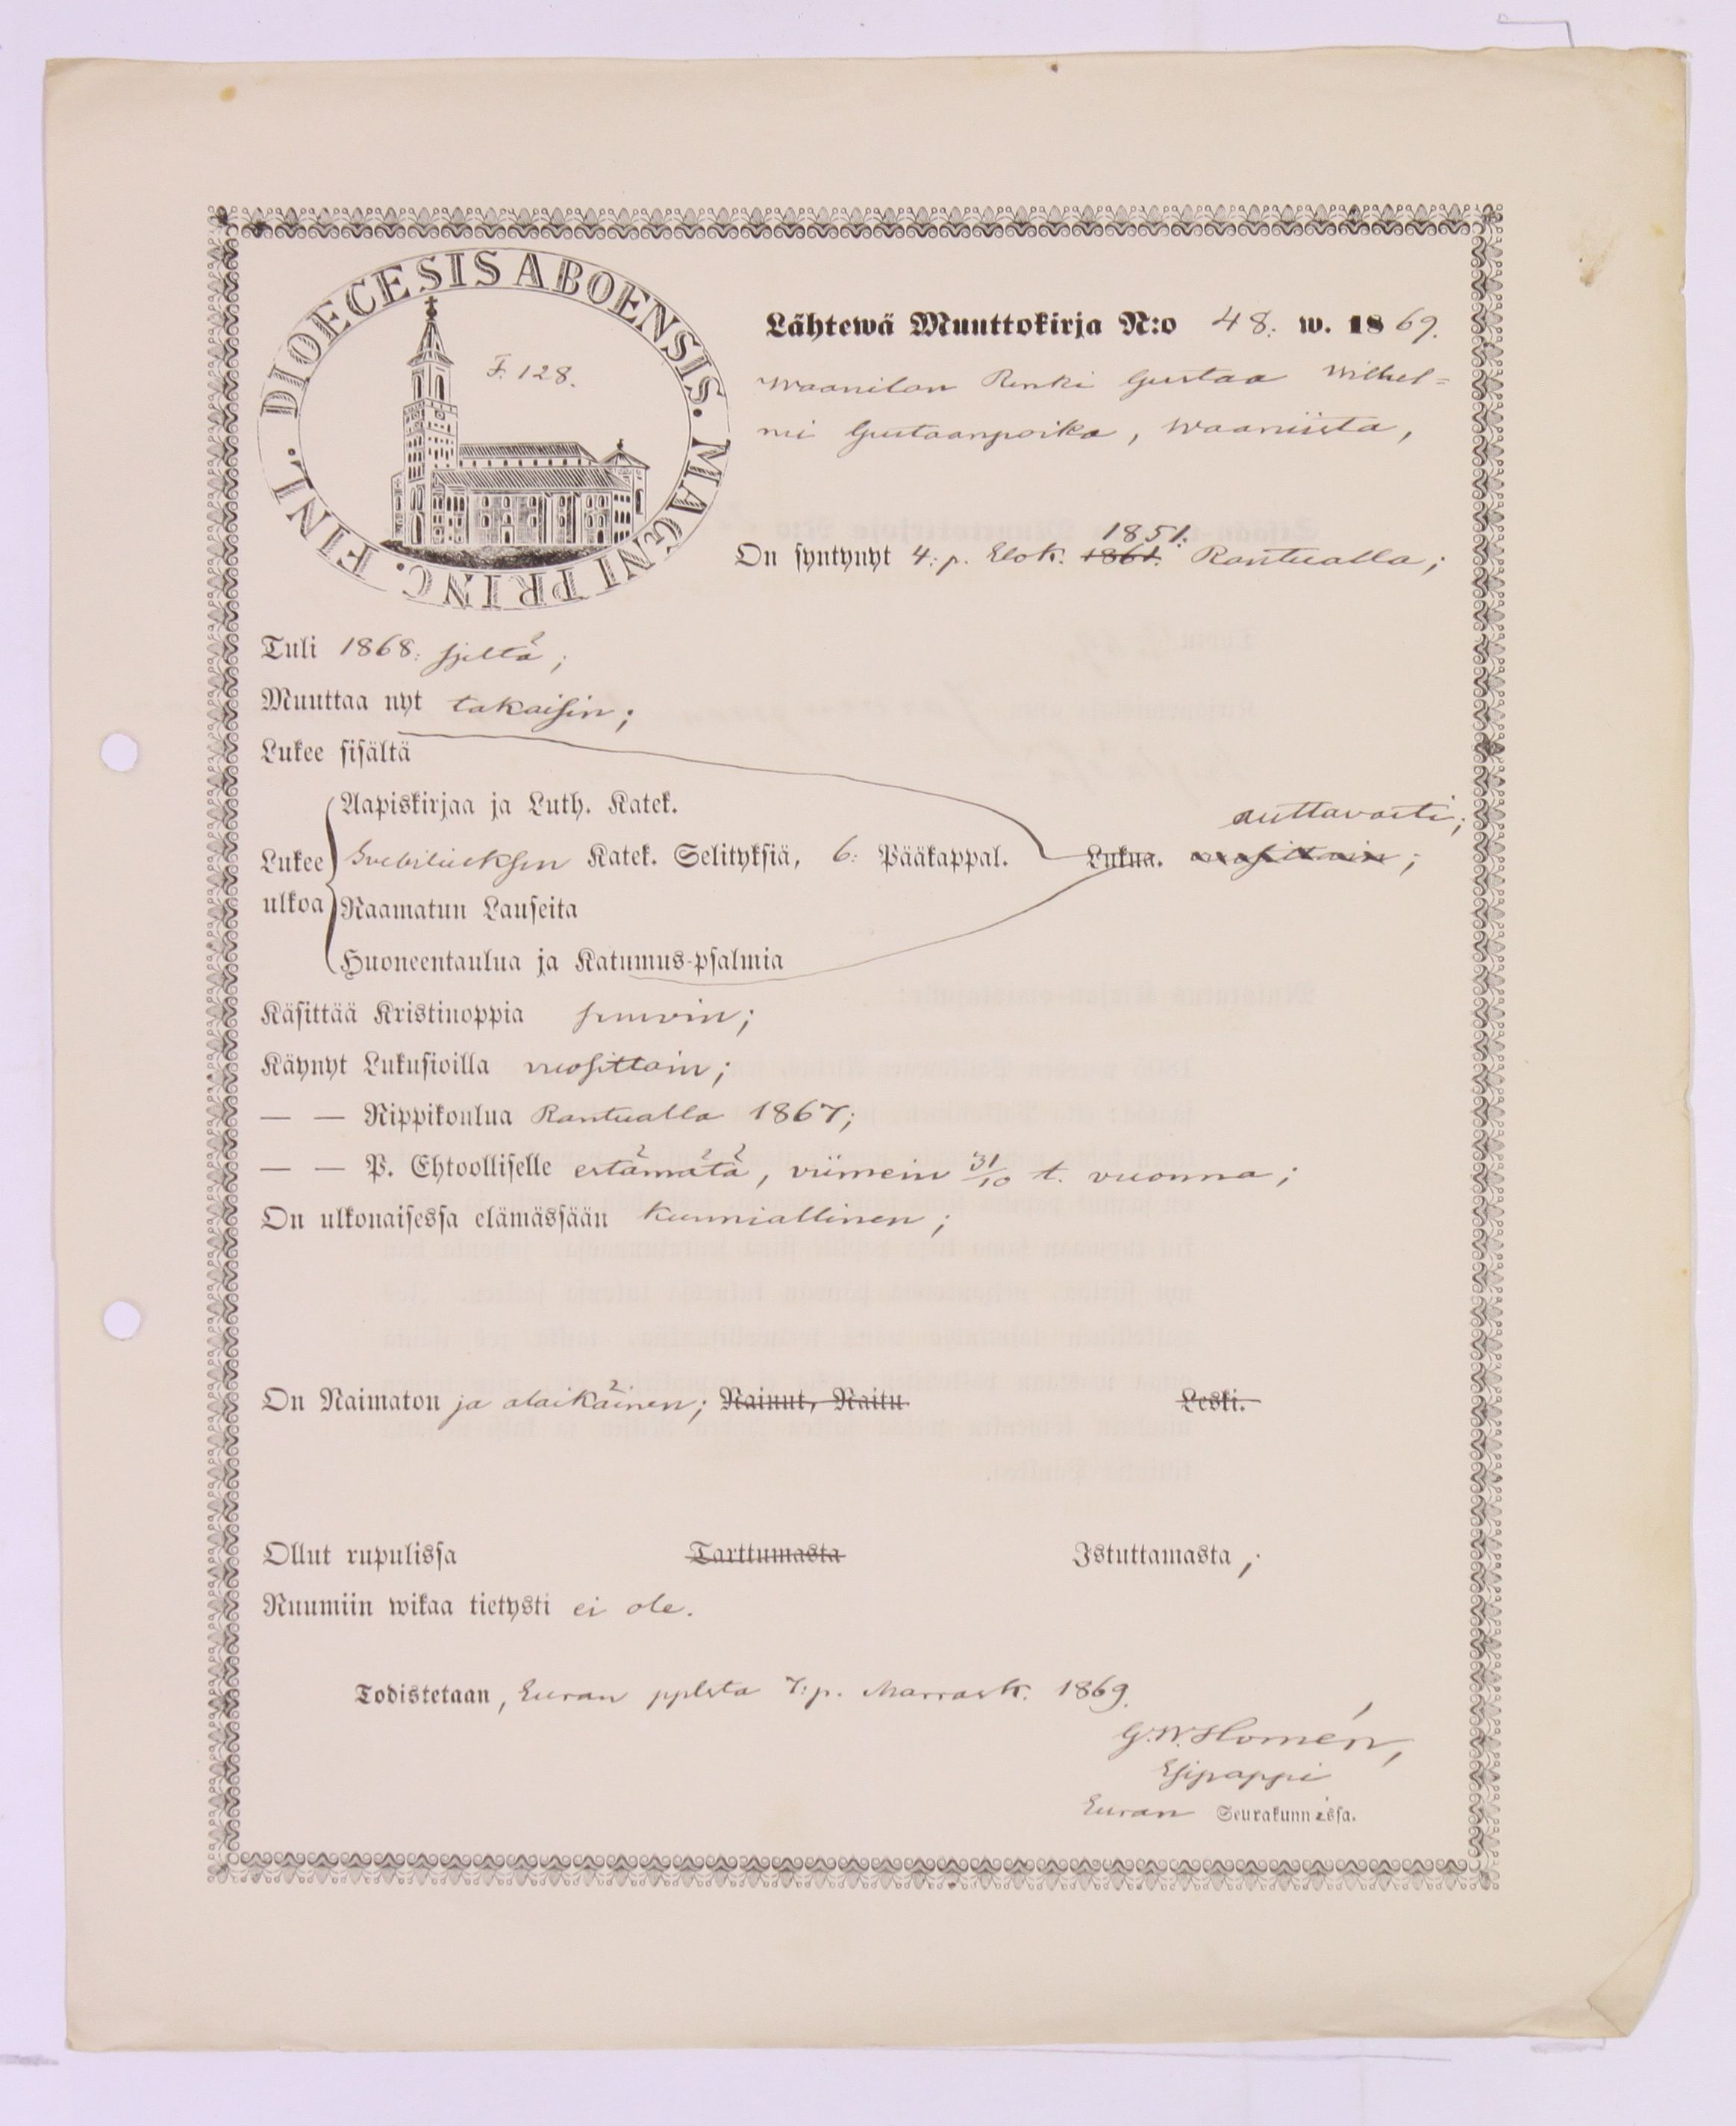 DIOECESIS ABOENSIS. MAGNI PRINC. FINL.
F. 128.
Lähtewä Muuttokirja N:o 48. w. 1869.
Waanilan Renki Gustaa Wilhel=
mi Gustaanpoika, Waaniista,
1851.
On syntynyt 4: p. Elok. 1861. Rantualla;
Tuli 1868. sieltä;
Muuttaa nyt takaisin;
Lukee sisältä
Aapiskirjaa ja Luth. Katek.
auttavasti;
Lukee ulkoa Svebiliuksen Katek. Selityksiä, 6: Pääkappal. Lukua. vuosittain;
Raamatun Lauseita
Huoneentaulua ja Katumus-psalmia
Käsittää Kristinoppia
Käynyt Lukusioilla vuosittain;
— — Rippikoulua Rantualla 1867;
— — P. Ehtoolliselle estämätä, viimein 31/10 t. vuonna;
On ulkonaisessa elämässään kunniallinen;
On Naimaton ja alaikäinen; Nainut, Naitu Leski.
Ollut rupulissa Tarttumasta Istuttamasta;
Ruumiin wikaa tietysti ei ole.
Todistetaan, Euran pplsta 7: p. Marrask. 1869.
G. W. Homén,
Esipappi
Euran Seurakunnissa.